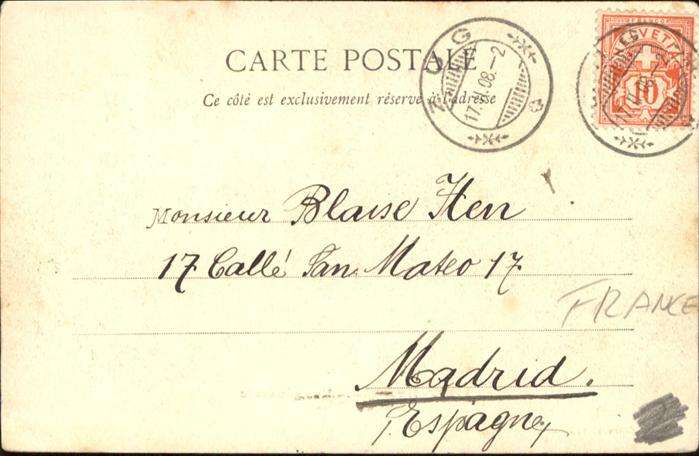 CARTE POSTALE
Ce côté est exclusivement réservé à l'adresse
ZUG
17.VI.08.-2
HELVETIA
10
Monsieur Blaise Hen
17 Callé San Mateo 17
FRANCE
Madrid.
Espagne